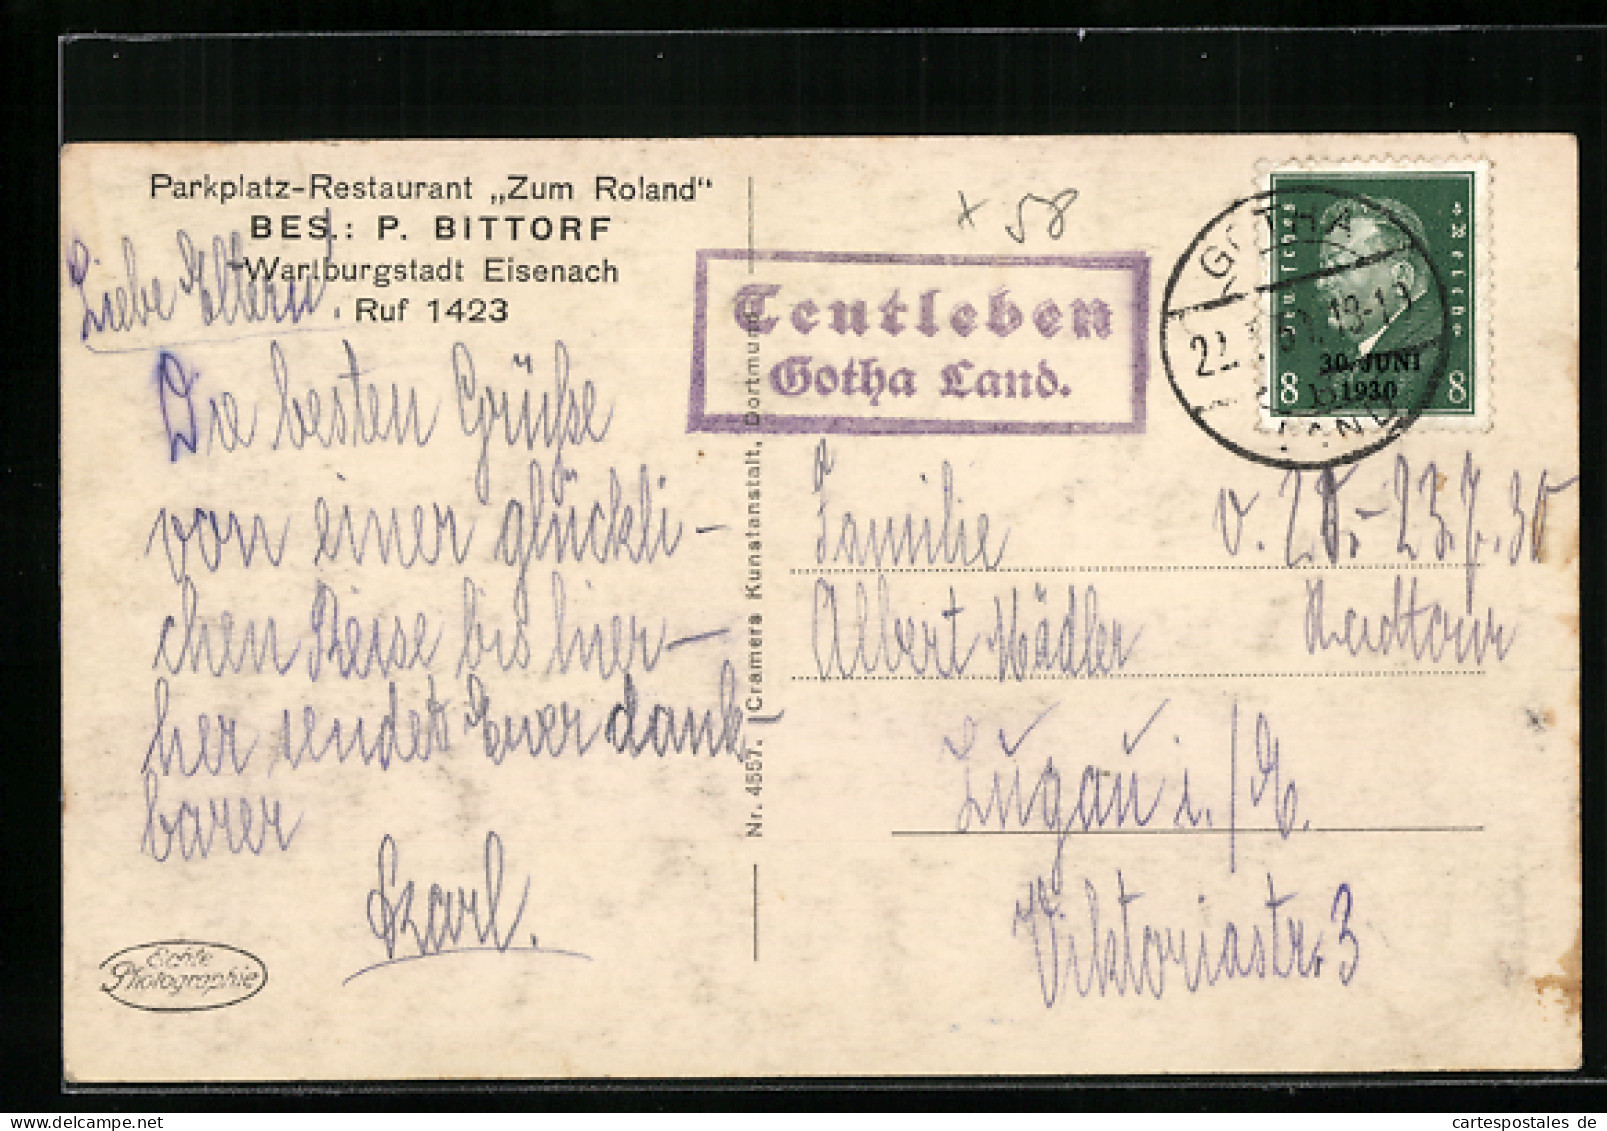 Parkplatz-Restaurant „Zum Roland"
BES.: P. BITTORF
Wartburgstadt Eisenach
Ruf 1423
Liebe Eltern!
Die besten Grüße
von einer glückli-
chen Reise bis hier-
her sendet Euer dank
barer
Karl.
Echte
Photographie
Nr. 4557. Cramers Kunstanstalt, Dortmund
+ 58
Teutleben
Gotha Land.
GOTHA
22. 18-19
LAND
Deutsches Reich
30. JUNI
1930
8 8
Familie
v. 20.-23.7.30
Albert Mädler
Radtour
Lugau i./E.
Viktoriastr. 3
cartespostales de